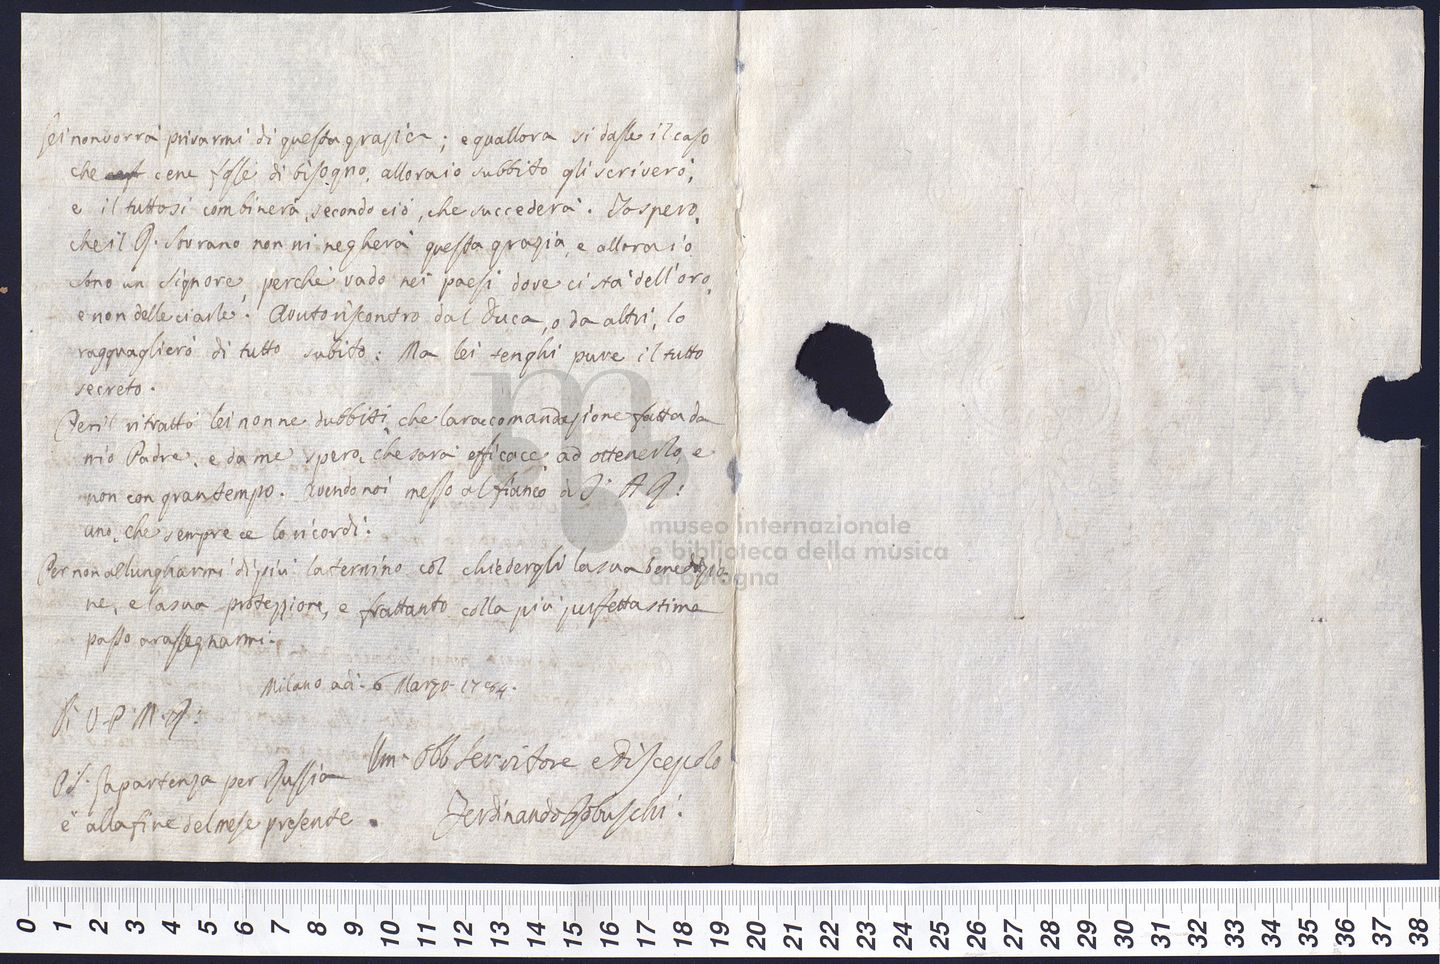 Lei non vorrà privarmi di questa grazia; e quallora si dasse il caso
che ce ne fosse di bisogno, allora io subbito gli scriverò,
e il tutto si combinerà, secondo ciò, che succederà. Io spero,
che il Sovrano non mi negherà questa grazia, e allora io
sono un Signore, perchè vado nei paesi dove ci stà dell'oro,
e non delle ciarle. Avuto riscontro dal Duca, o da altri, lo
ragguaglierò di tutto subito: Ma lei tenghi pure il tutto
secreto.
Per il ritratto lei non ne dubbiti, che la raccomandazione fatta da
mio Padre, e da me spero, che sarà efficace ad ottenerlo, e
non con gran tempo. Avendo noi messo al fianco di
uno, che sempre ce lo ricordi:
Per non allungharmi di più la termino col chiedergli la sua benedizio
ne, e la sua protezzione, e frattanto colla più perfetta stima
passo a rassegnarmi.
Milano adi 6 Marzo 1784.
Di V. P. M. R:
Um. Obb Servitore e Discepolo
Ferdinando Robuschi.
P.S. La partenza per Russia
è alla fine del mese presente.
museo internazionale
e biblioteca della musica
di bologna
0 1 2 3 4 5 6 7 8 9 10 11 12 13 14 15 16 17 18 19 20 21 22 23 24 25 26 27 28 29 30 31 32 33 34 35 36 37 38